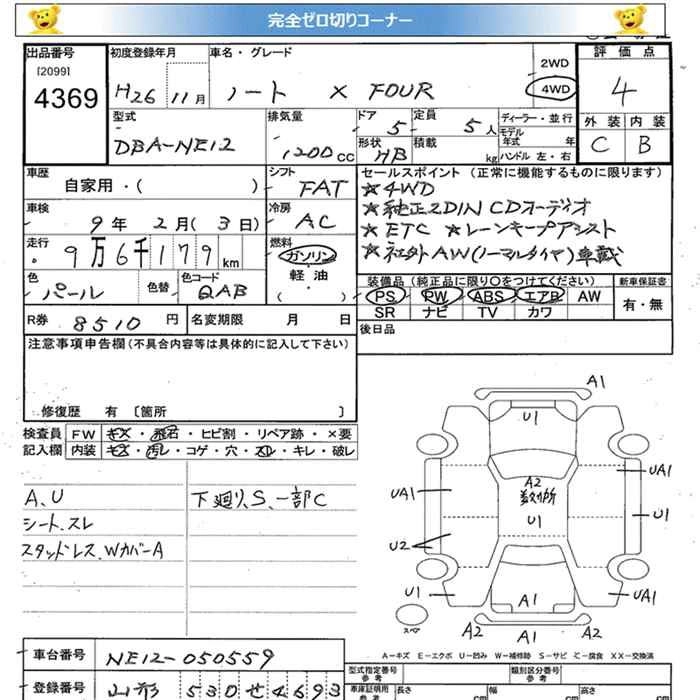 完全ゼロ切りコーナー
出品番号 初度登録年月 車名・グレード 評価点
[2099] 2WD
4369 H26 11月 ノート X FOUR 4WD 4
型式 排気量 ドア 定員 ディーラー・並行 外装 内装
DBA-NE12 1200cc 5 5人 モデル年式 年 C B
形状 HB 積載 kg ハンドル 左・右
車歴 シフト セールスポイント (正常に機能するものに限ります)
自家用・( ) FAT ★4WD
車検 冷房 ★純正2DIN CDオーディオ
9年 2月 (3日) AC ★ETC ★レーンキープアシスト
走行 燃料 ★社外AW(ノーマルタイヤ)車載
9万6千179km ガソリン
色 色替 色コード 軽油 装備品 (純正品に限り○をつけてください) 新車保証書
パール QAB ( ・ ) PS PW ABS エアB AW 有・無
SR ナビ TV カワ
R券 8510円 名変期限 月 日 後日品
注意事項申告欄 (不具合内容等は具体的に記入して下さい)
修復歴 有 〔箇所 〕
検査員 FW キズ・飛石・ヒビ割・リペア跡・×要
記入欄 内装 キズ・汚レ・コゲ・穴・スレ・キレ・破レ
A、U 下廻り、S、一部C
シート、スレ
スタッドレス、WカバーA
A1
U1
UA1
UA1
A2
数ヶ所
U1
U1
U2
U1
UA1
A1
A2
A1
A2
スペア
A－キズ E－エクボ U－凹み W－補修跡 S－サビ C－腐食 XX－交換済
車台番号 NE12-050559 型式指定番号 参考 類別区分番号 参考
登録番号 山形 530 せ 4693 車庫証明用 参考 長さ cm 幅 cm 高さ cm